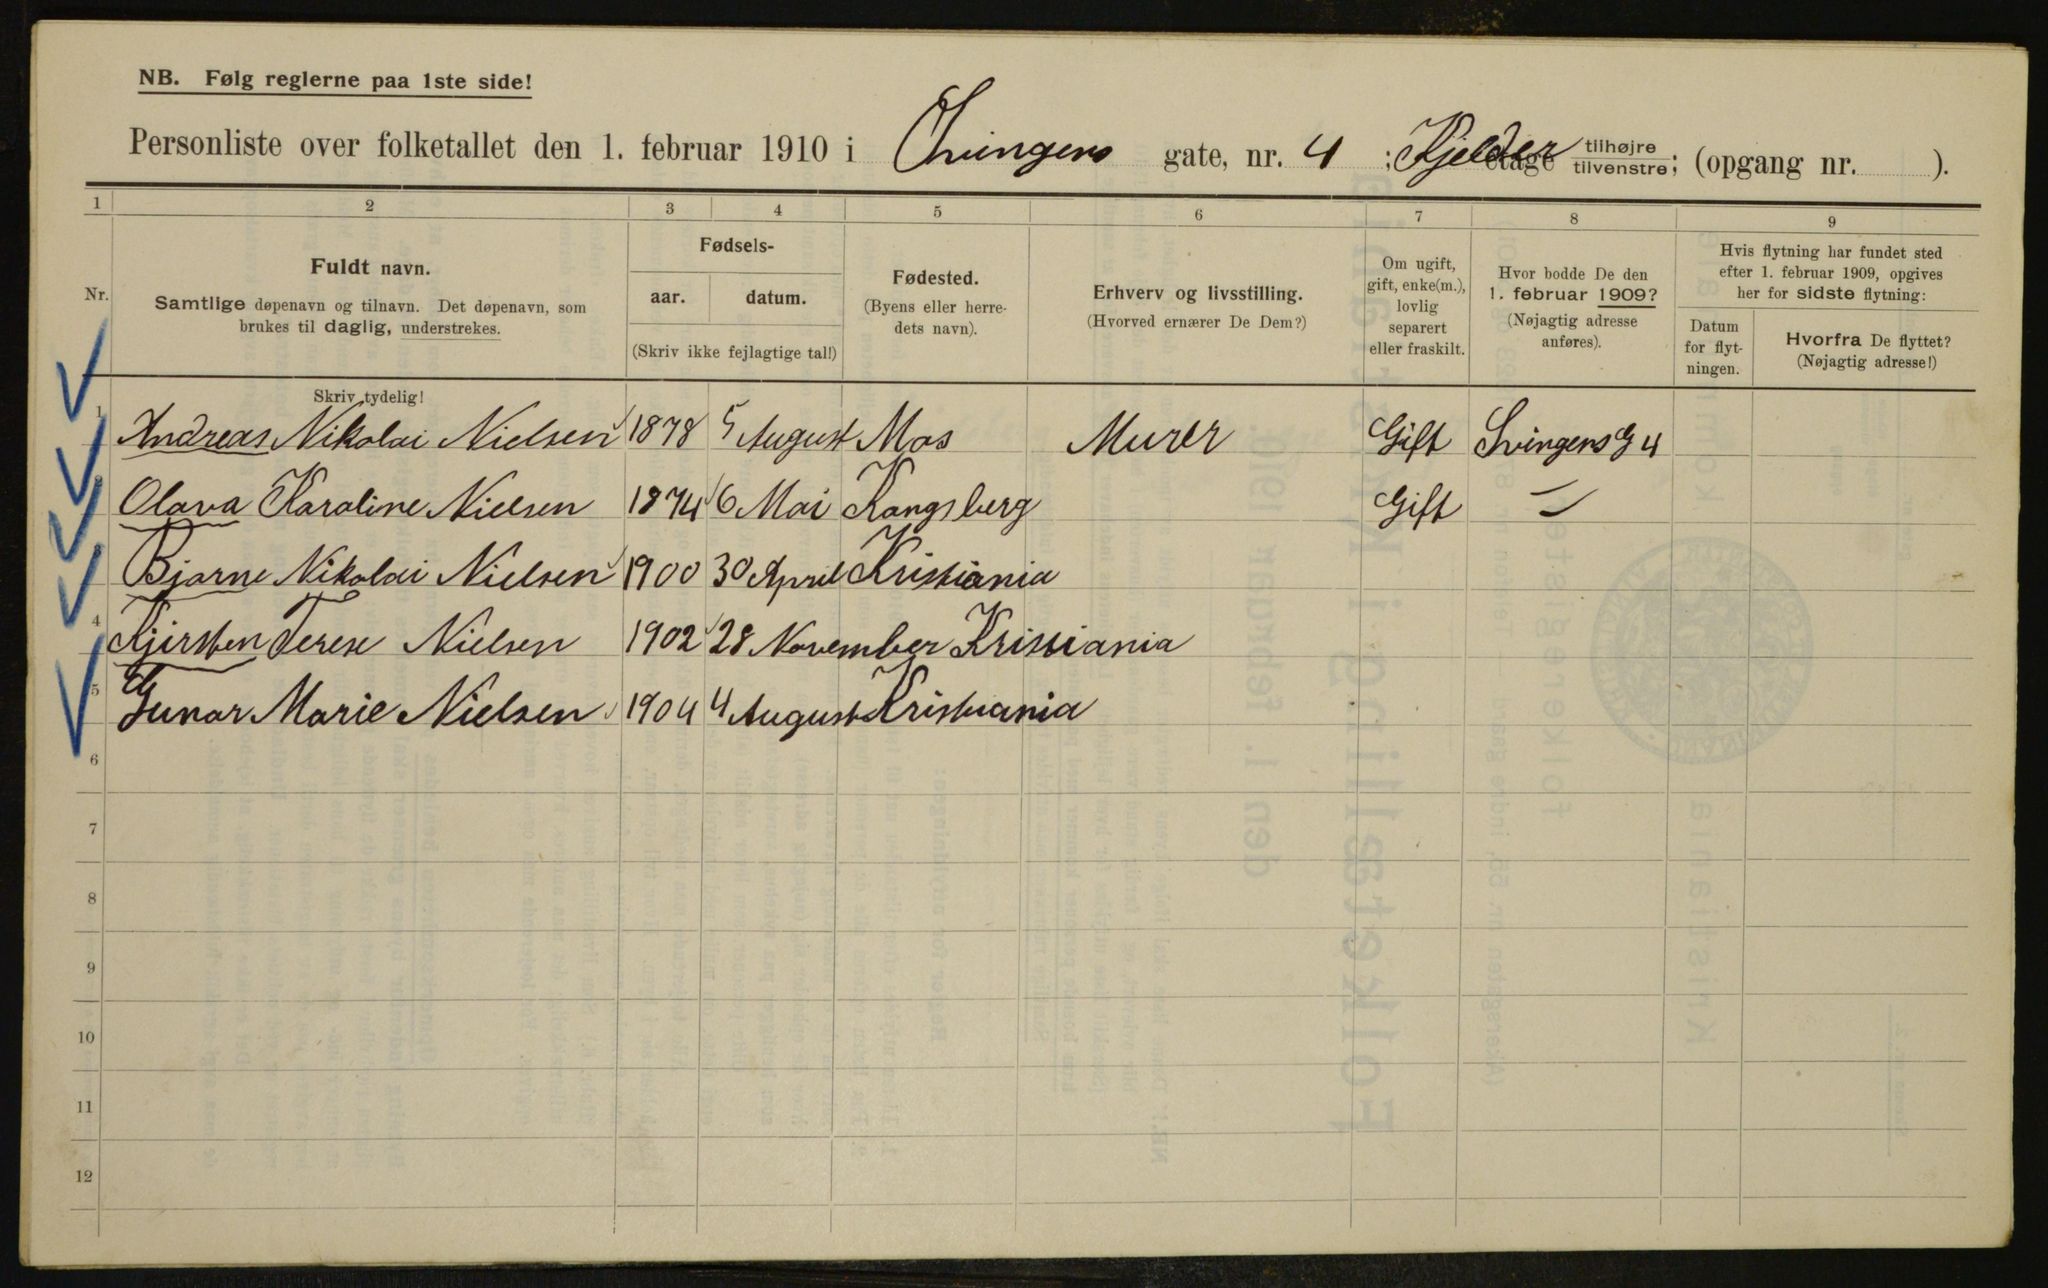 NB. Følg reglerne paa 1ste side!
Personliste over folketallet den 1. februar 1910 i Svingens gate, nr. 4 ; Kjelder etage tilhøjre tilvenstre; (opgang nr. ).
1 2 3 4 5 6 7 8 9
Nr.
Fuldt navn.
Samtlige døpenavn og tilnavn. Det døpenavn, som
brukes til daglig, understrekes.
Fødsels-
aar. datum.
(Skriv ikke fejlagtige tal!)
Fødested.
(Byens eller herre-
dets navn).
Erhverv og livsstilling.
(Hvorved ernærer De Dem?)
Om ugift,
gift, enke(m.),
lovlig
separert
eller fraskilt.
Hvor bodde De den
1. februar 1909?
(Nøjagtig adresse
anføres).
Hvis flytning har fundet sted
efter 1. februar 1909, opgives
her for sidste flytning:
Datum
for flyt-
ningen.
Hvorfra De flyttet?
(Nøjagtig adresse!)
Skriv tydelig!
1 Andreas Nikolai Nielsen 1878 5 August Mos Murer Gift Svingens G 4
Olava Karoline Nielsen 1874 6 Mai Kongsberg Gift —
3 Bjarne Nikolai Nielsen 1900 30 April Kristiania
4 Kjirsten Terese Nielsen 1902 28 November Kristiania
5 Gunar Marie Nielsen 1904 4 August Kristiania
6
7
8
9
10
11
12